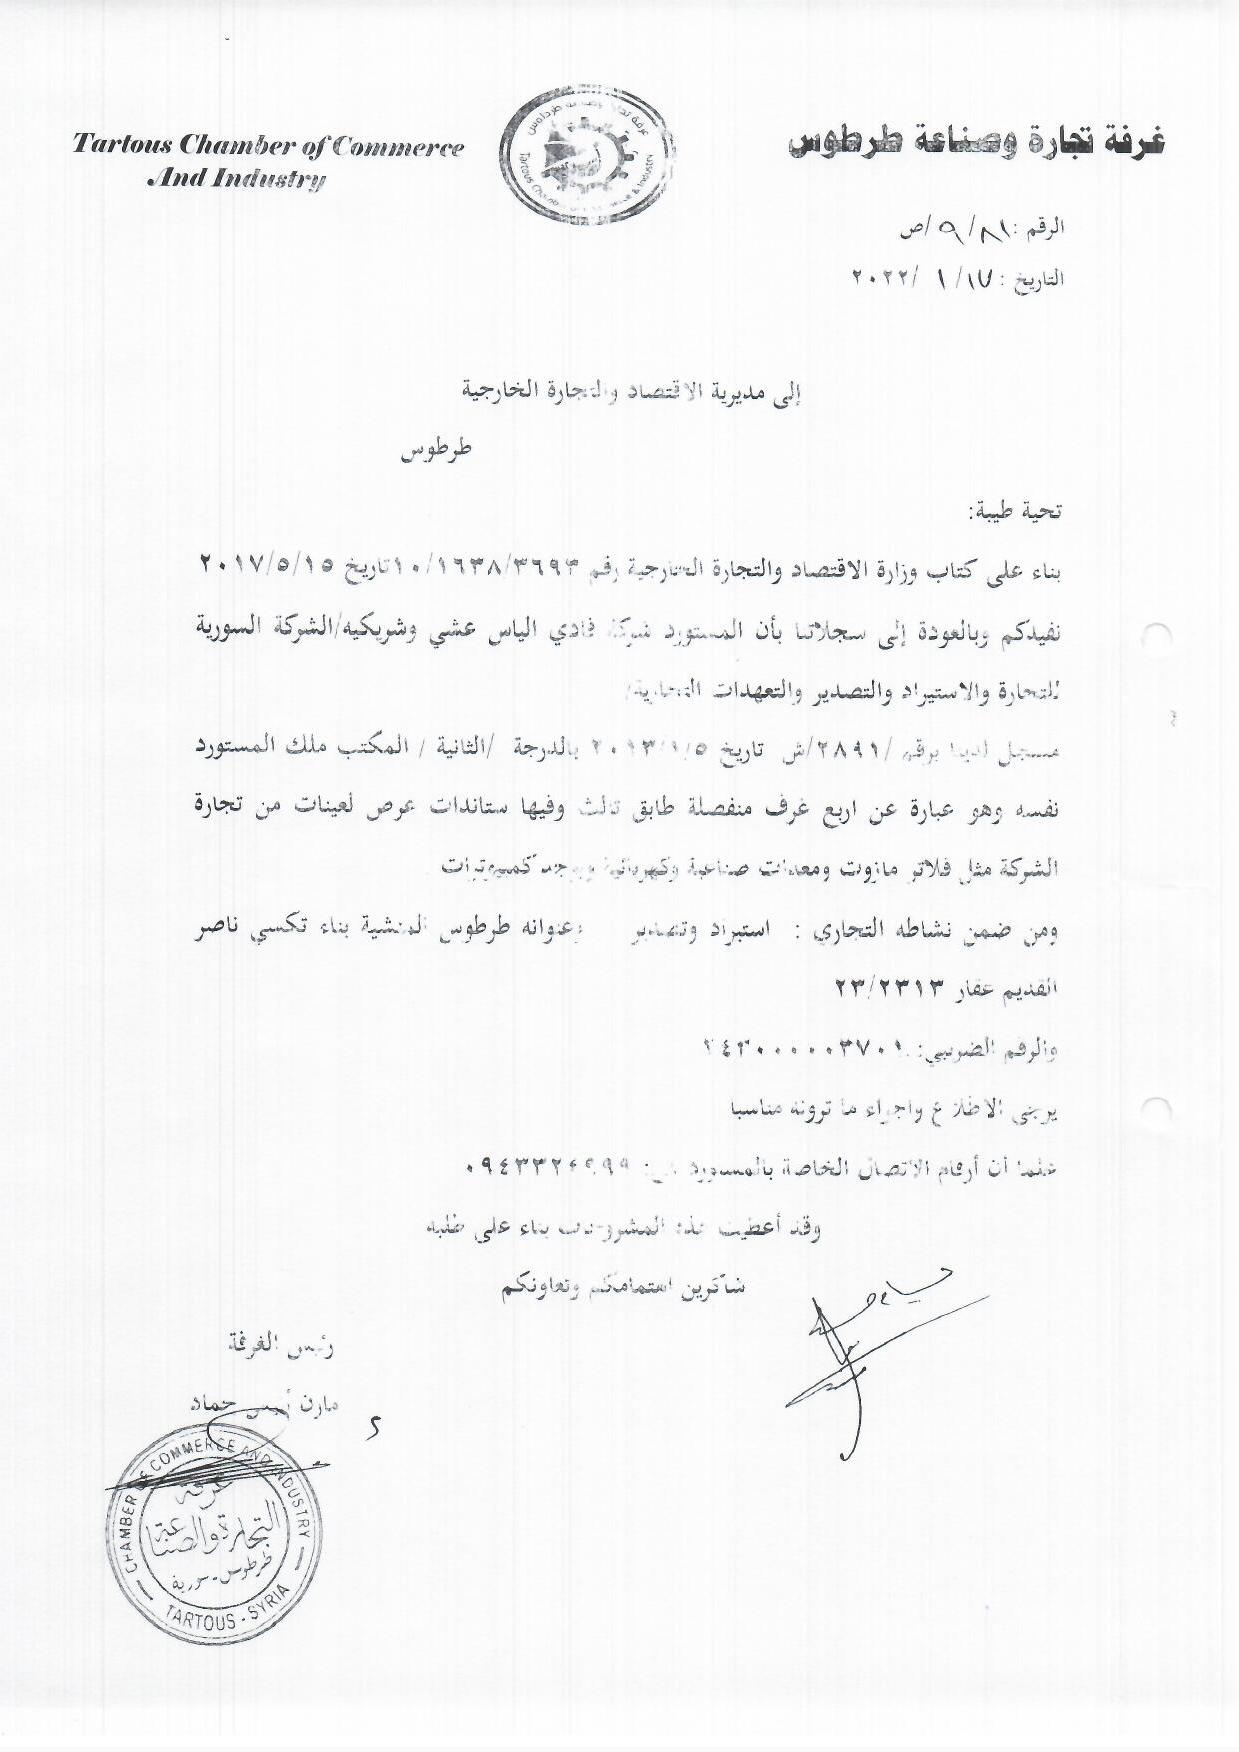 Tartous Chamber of Commerce
And Industry
غرفة تجارة وصناعة طرطوس
الرقم: ٨١/ ٩/ص
التاريخ: ١٧/ ١ /٢٠٢٢
إلى مديرية الاقتصاد والتجارة الخارجية
طرطوس
تحية طيبة:
بناء على كتاب وزارة الاقتصاد والتجارة الخارجية رقم ١٠/١٦٣٨/٣٦٩٣تاريخ ٢٠١٧/٥/١٥
نفيدكم وبالعودة إلى سجلاتنا بأن المستورد شركة فادي الياس عشي وشريكيه/الشركة السورية
للتجارة والاستيراد والتصدير والتعهدات التجارية/
مسجل لدينا برقم /٢٨٩١/ش تاريخ ٢٠١٣/١/٥ بالدرجة /الثانية / المكتب ملك المستورد
نفسه وهو عبارة عن اربع غرف منفصلة طابق ثالث وفيها ستاندات عرض لعينات من تجارة
الشركة مثل فلاتر مازوت ومعدات صناعية وكهربائية ويوجد كمبيوترات
ومن ضمن نشاطه التجاري : استيراد وتصدير وعنوانه طرطوس المنشية بناء تكسي ناصر
القديم عقار ٢٣/٢٣١٣
والرقم الضريبي:
يرجى الاطلاع واجراء ما ترونه مناسبا
علما أن أرقام الاتصال الخاصة بالمستورد هي:
وقد أعطيت هذه المشروحات بناء على طلبه
شاكرين اهتمامكم وتعاونكم
رئيس الغرفة
مازن حماد
CHAMBER OF COMMERCE AND INDUSTRY
غرفة
التجارة والصناعة
طرطوس - سورية
TARTOUS - SYRIA